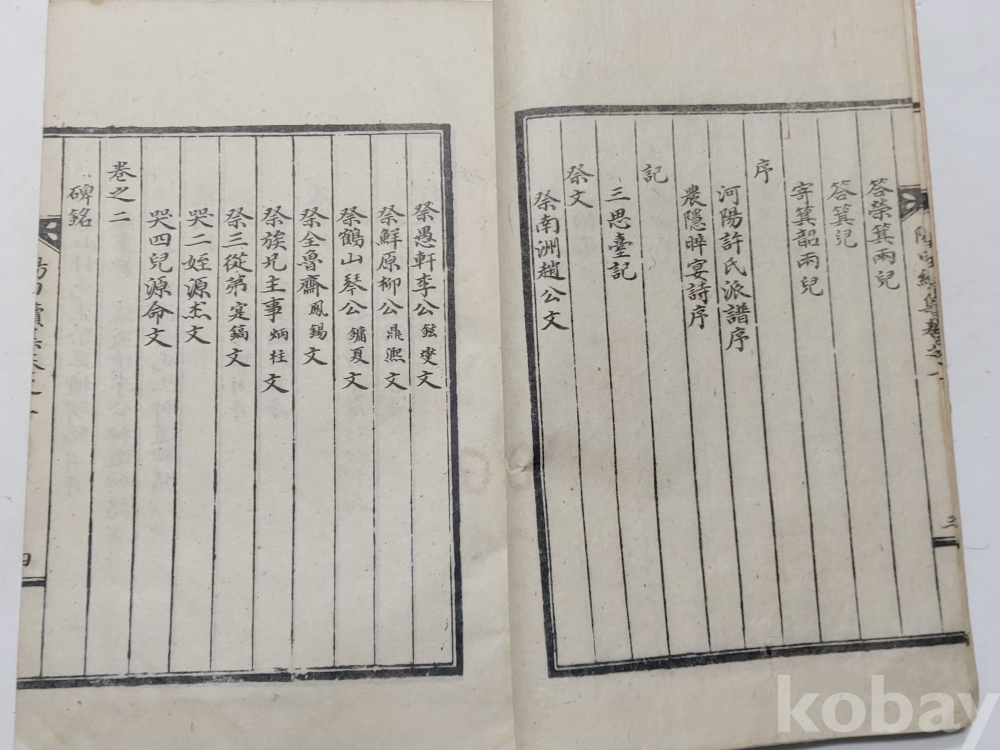 答榮箕兩兒
答箕兒
寄箕韶兩兒
序
河陽許氏派譜序
農隱晬宴詩序
記
三思臺記
祭文
祭南洲趙公文
三
祭愚軒李公鉉燮文
祭鮮原柳公鼎熙文
祭鶴山琴公鏞夏文
祭全魯齋鳳錫文
祭族兄主事炳柱文
祭三從弟寔鎬文
哭二姪源杰文
哭四兒源命文
卷之二
碑銘
四
kobay